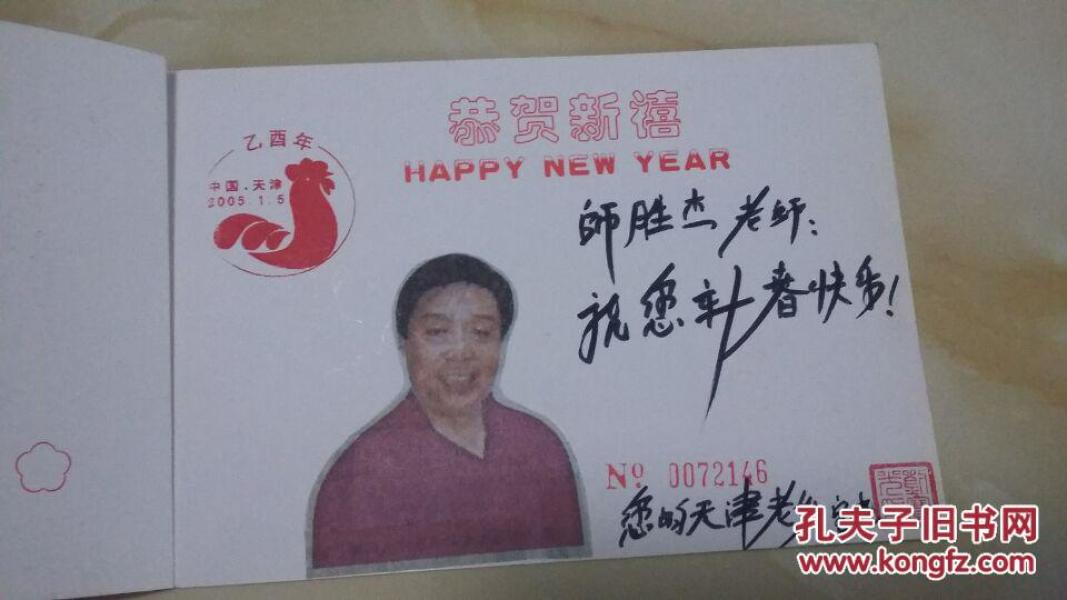 恭贺新禧
HAPPY NEW YEAR
乙酉年
中国.天津
2005.1.5
師胜杰老师:
祝您新春快乐!
Nº 0072146
您的天津老
孔夫子旧书网
www.kongfz.com